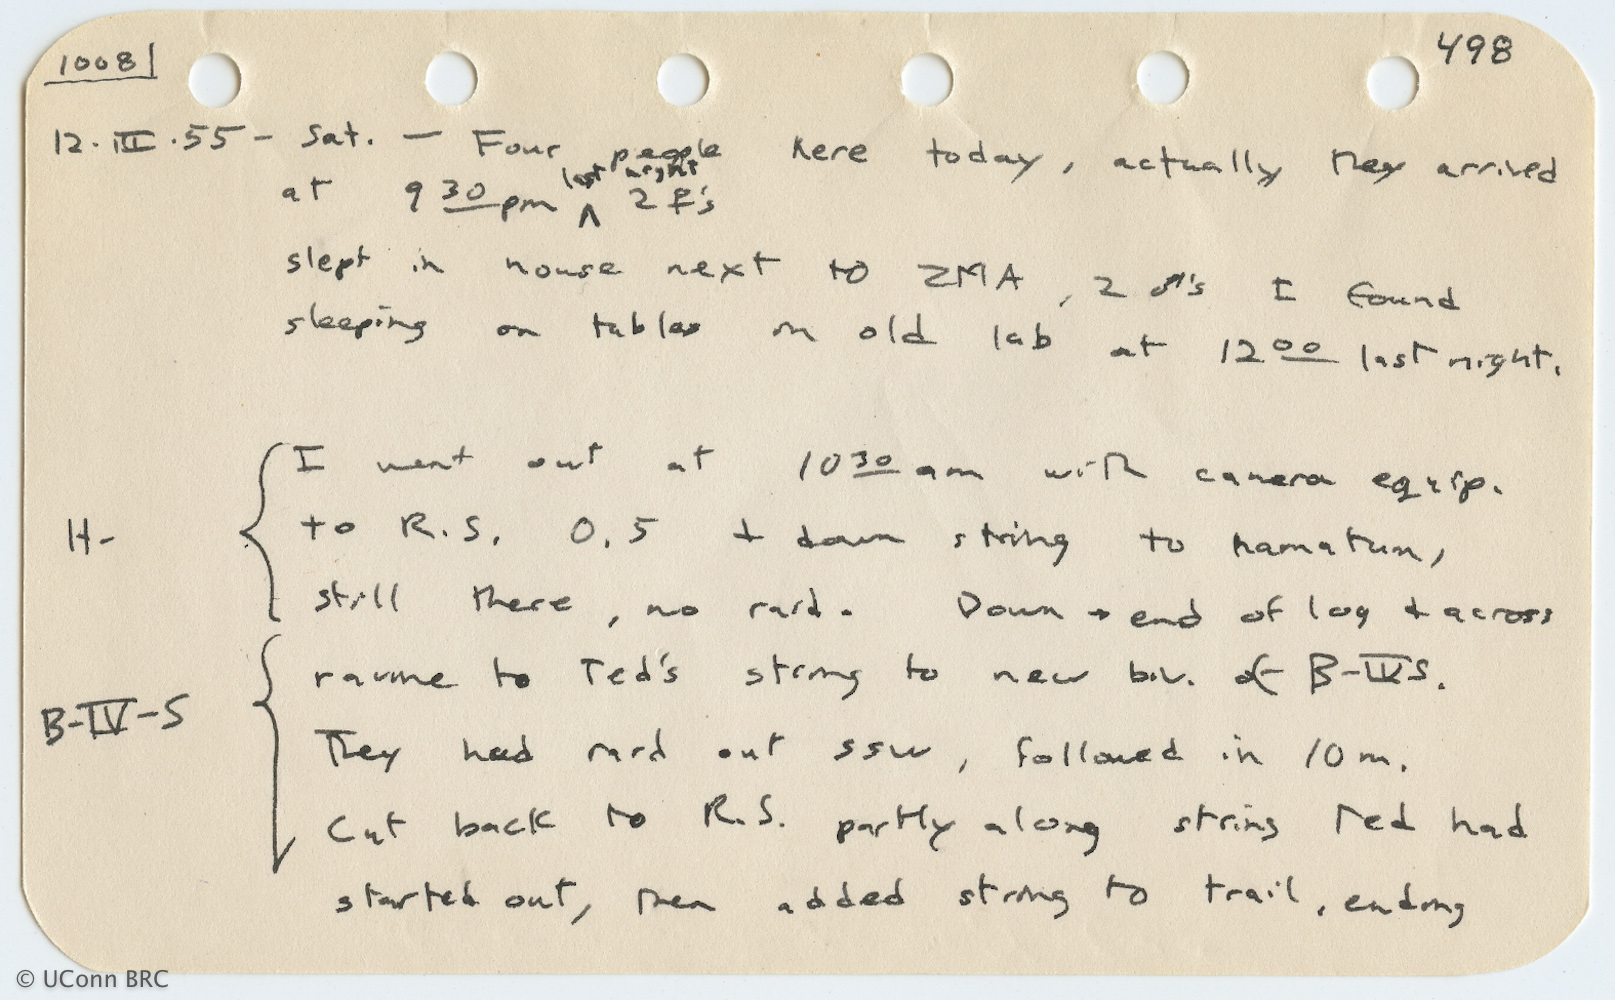 1008
498
12·III·55 - Sat. — Four people here today, actually they arrived
at 9 30 pm ^ last night 2 F's
slept in house next to ZMA, 2 ♂'s I found
sleeping on tables in old lab at 12 00 last night.
I went out at 10 30 am with camera equip.
H- to R.S. 0.5 + down string to hamatum,
still there, no raid. Down → end of log + across
ravine to Ted's string to new biv. of B-IVS.
B-IV-S
They had raid out SSW, followed in 10 m.
Cut back to R.S. partly along string Ted had
started out, then added string to trail, ending
© UConn BRC